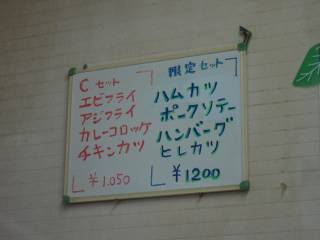 C セット
エビフライ
アジフライ
カレーコロッケ
チキンカツ
¥1.050
限定セット
ハムカツ
ポークソテー
ハンバーグ
ヒレカツ
¥1200